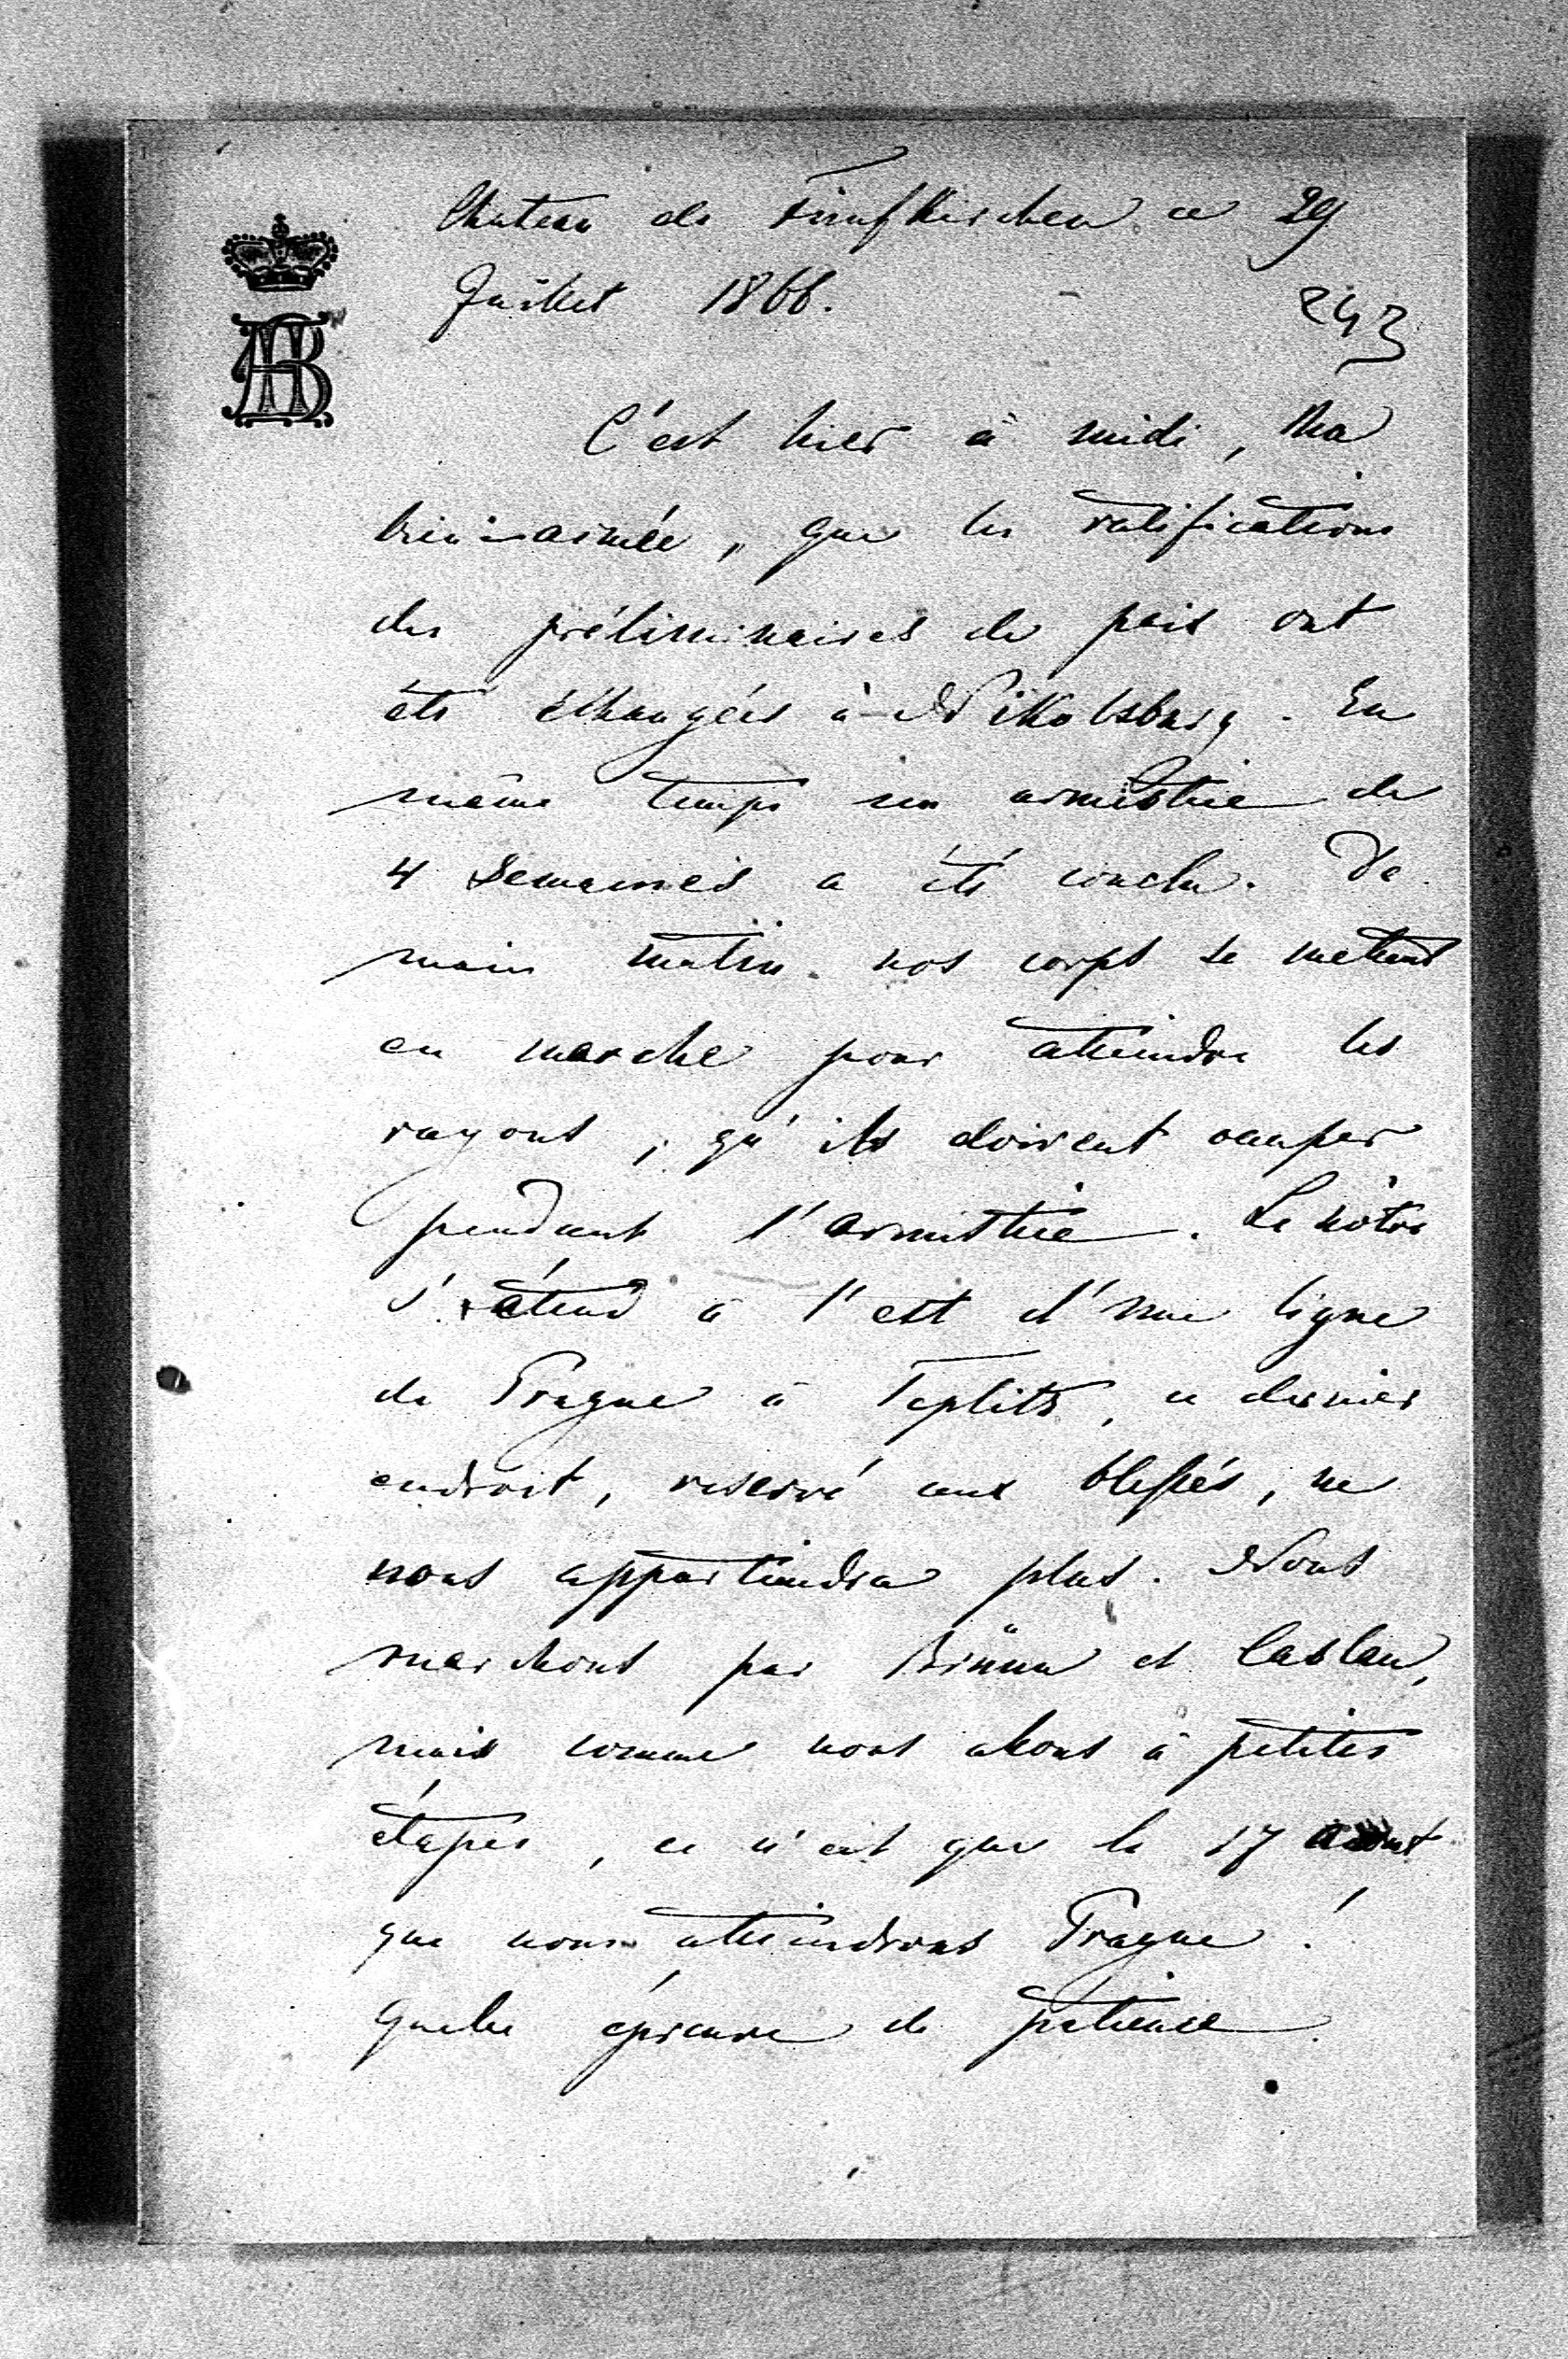 Chateau de Fünfkirchen ce 29
Juillet 1866.
243
C'est hier à midi, Ma
bien-aimée, que les ratifications
des préliminaires de paix ont
été échangées à Nikolsburg. En
même temps un armistice de
4 semaines a été conclu. De
main matin nos corps se mettent
en marche pour atteindre les
rayons, qu'ils doivent occuper
pendant l'armistice. Le nôtre
s'étend à l'est d'une ligne
de Prague à Teplitz, ce dernier
endroit, reservé aux blessés, ne
nous appartiendra plus. Nous
marchons par Brünn et Caslau,
mais comme nous allons à petites
étapes, ce n'est que le 17 aout
que nous atteindrons Prague!
Quelle épreuve de patience.